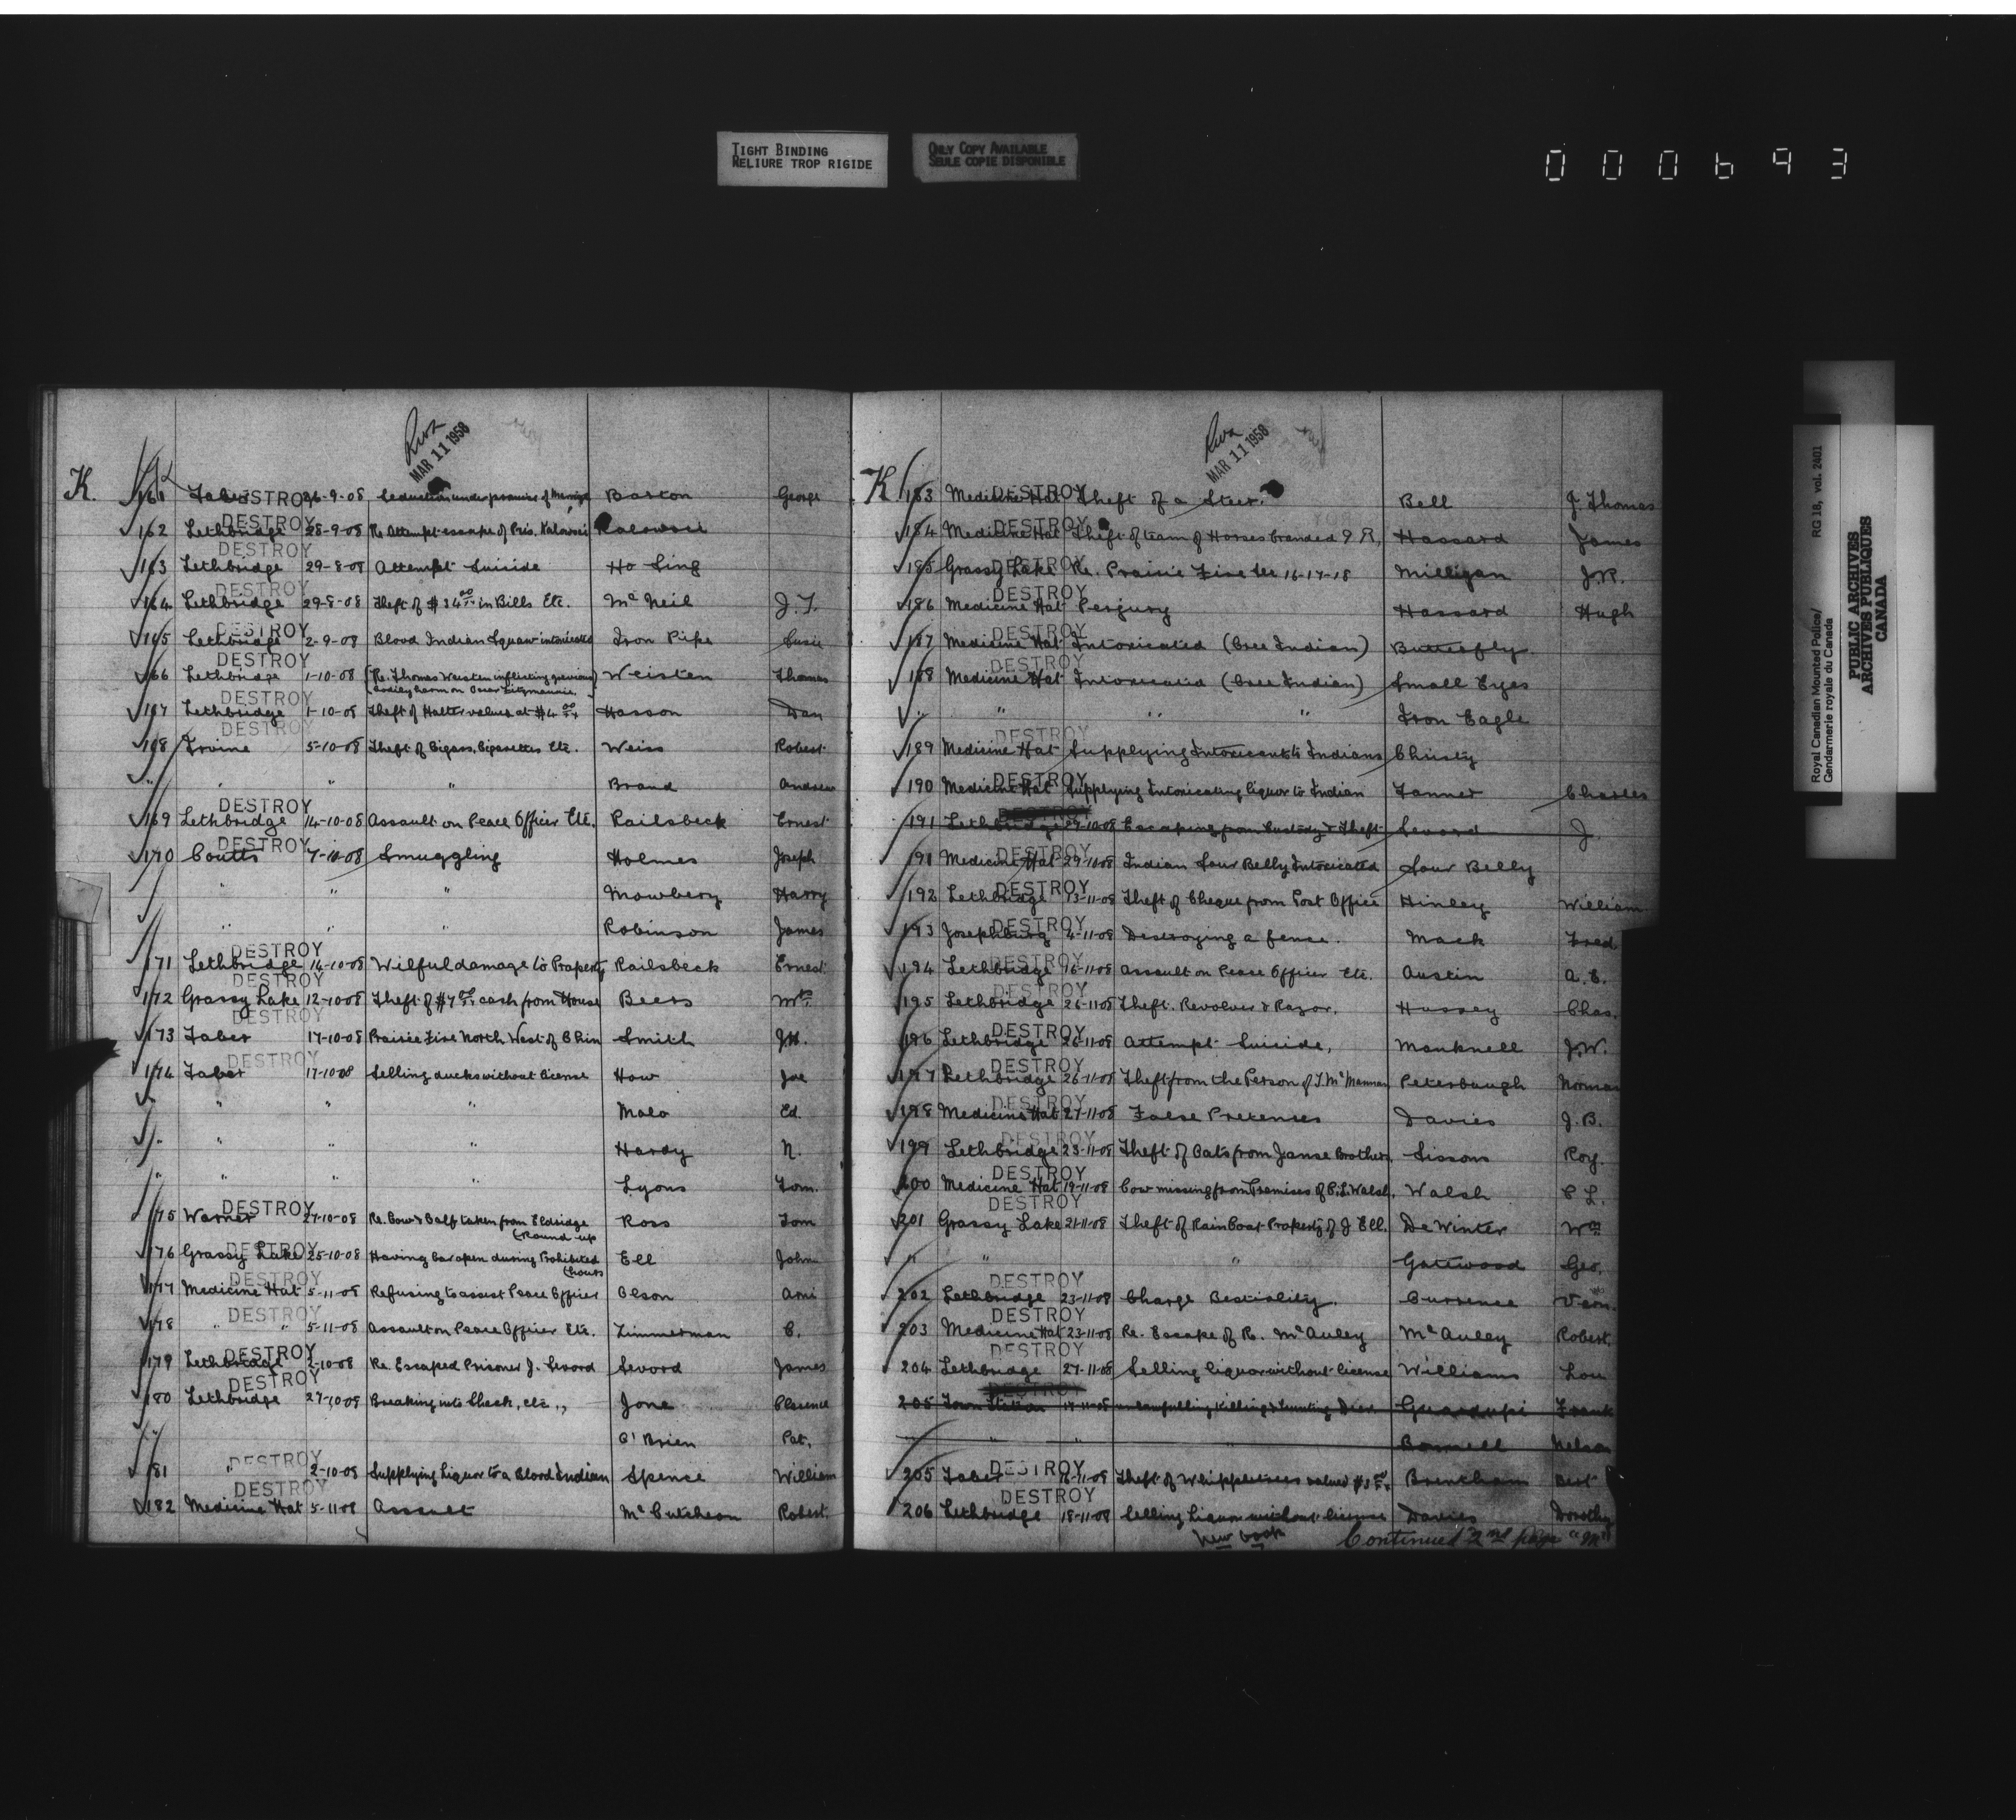 TIGHT BINDING
RELIURE TROP RIGIDE
ONLY COPY AVAILABLE
SEULE COPIE DISPONIBLE
000693
Royal Canadian Mounted Police/ RG 18, vol. 2401
Gendarmerie royale du Canada
PUBLIC ARCHIVES
ARCHIVES PUBLIQUES
CANADA
MAR 11 1958
K. 161 Taber DESTROY 26-9-08 Seduction under promise of Marriage Barton George
162 Lethbridge DESTROY 28-9-08 Re Attempt escape of Pris. Kalowsii Kalowsii
163 Lethbridge DESTROY 29-8-08 Attempt Suicide Ho Sing
164 Lethbridge DESTROY 29-8-08 Theft of $34.00 in Bills Etc. McNeil J.T.
165 Lethbridge DESTROY 2-9-08 Blood Indian Squaw intoxicated Iron Pipe Susie
166 Lethbridge DESTROY 1-10-08 (Re. Thomas Weisten inflicting grevious) Weisten Thomas
bodily harm on Oscar
167 Lethbridge DESTROY 1-10-08 Theft of Halter values at $4.00 Hasson Dan
168 Irvine DESTROY 5-10-08 Theft of Cigars, Cigarettes Etc. Weiss Robert
" " " " Brand Andrew
169 Lethbridge DESTROY 14-10-08 Assault on Peace Officer Etc. Railsbeck Ernest
170 Coutts DESTROY 7-10-08 Smuggling Holmes Joseph
" " " Mowbery Harry
" " " Robinson James
171 Lethbridge DESTROY 14-10-08 Wilful damage to Property Railsbeck Ernest
172 Grassy Lake DESTROY 12-10-08 Theft of $7.00 cash from House Beers Mrs.
173 Taber DESTROY 17-10-08 Prairie Fire North West of Chin Smith J.H.
174 Taber DESTROY 17-10-08 Selling ducks without license How Joe
" " " Malo Ed.
" " " " Hardy N.
" " " " Lyons Tom.
175 Warner DESTROY 27-10-08 Re. Cow & Calf taken from Eldridge Ross Tom
(Round up
176 Grassy Lake DESTROY 25-10-08 Having bar open during Prohibited Ell John
(hours
177 Medicine Hat DESTROY 5-11-08 Refusing to assist Peace Officer Olson Arni
178 " " DESTROY 5-11-08 Assault on Peace Officer Etc. Zimmerman C.
179 Lethbridge DESTROY 2-10-08 Re. Escaped Prisoner J. Sevord Sevord James
180 Lethbridge DESTROY 27-10-08 Breaking into Shack, etc., Jone Clarence
" O'Brien Pat.
181 " DESTROY 2-10-08 Supplying Liquor to a Blood Indian Spence William
182 Medicine Hat DESTROY 5-11-08 Assault McCutcheon Robert.
MAR 11 1958
K 183 Medicine Hat DESTROY Theft of a Steer. Bell J. Thomas
184 Medicine Hat DESTROY Theft of team of Horses branded Hassard James
185 Grassy Lake DESTROY Re. Prairie Fire Sec 16-17-18 Milligan J.R.
186 Medicine Hat DESTROY Perjury Hassard Hugh
187 Medicine Hat DESTROY Intoxicated (Cree Indian) Butterfly
188 Medicine Hat DESTROY Intoxicated (Cree Indian) Small Eyes
" " " " Iron Eagle
189 Medicine Hat DESTROY Supplying Intoxicants to Indians Christy
190 Medicine Hat DESTROY Supplying Intoxicating liquor to Indian Tanner Charles
191 Lethbridge DESTROY 27-10-08 Escaping from Custody & Theft Sevord J.
191 Medicine Hat DESTROY 29-10-08 Indian Sour Belly Intoxicated Sour Belly
192 Lethbridge DESTROY 13-11-08 Theft of Cheque from Post Office Hinley William
193 Josephburg DESTROY 4-11-08 Destroying a fence. Mack Fred
194 Lethbridge DESTROY 16-11-08 Assault on Peace Officer Etc. Austin A.E.
195 Lethbridge DESTROY 26-11-08 Theft. Revolver & Razor. Hussey Chas.
196 Lethbridge DESTROY 26-11-08 Attempt Suicide, Manknell J.W.
197 Lethbridge DESTROY 26-11-08 Theft from the Person of T. McMannan Peterbaugh Norman
198 Medicine Hat DESTROY 27-11-08 False Pretenses Davies J.B.
199 Lethbridge DESTROY 23-11-08 Theft of Oats from Janse Brothers. Sissons Roy.
200 Medicine Hat DESTROY 19-11-08 Cow missing from Premises of C.L. Walsh. Walsh C L.
201 Grassy Lake DESTROY 21-11-08 Theft of Rain Coat Property of J Ell. De Winter Wm
" " " Gatewood Geo.
202 Lethbridge DESTROY 23-11-08 Charge Bestiality. Currence Vern.
203 Medicine Hat DESTROY 23-11-08 Re. Escape of R. McAuley McAuley Robert.
204 Lethbridge DESTROY 27-11-08 Selling liquor without license Williams Lou
205 Town Station DESTROY 17-11-08 unlawfully killing & hunting Deer Guardupi Frank
" " " Boswell Nelson
205 Taber DESTROY 16-11-08 Theft of Whippletrees valued $3.00 Brentham Bert
206 Lethbridge DESTROY 18-11-08 Selling Liquor without license Davies Dorothy
New Book Continued 2nd page "M"